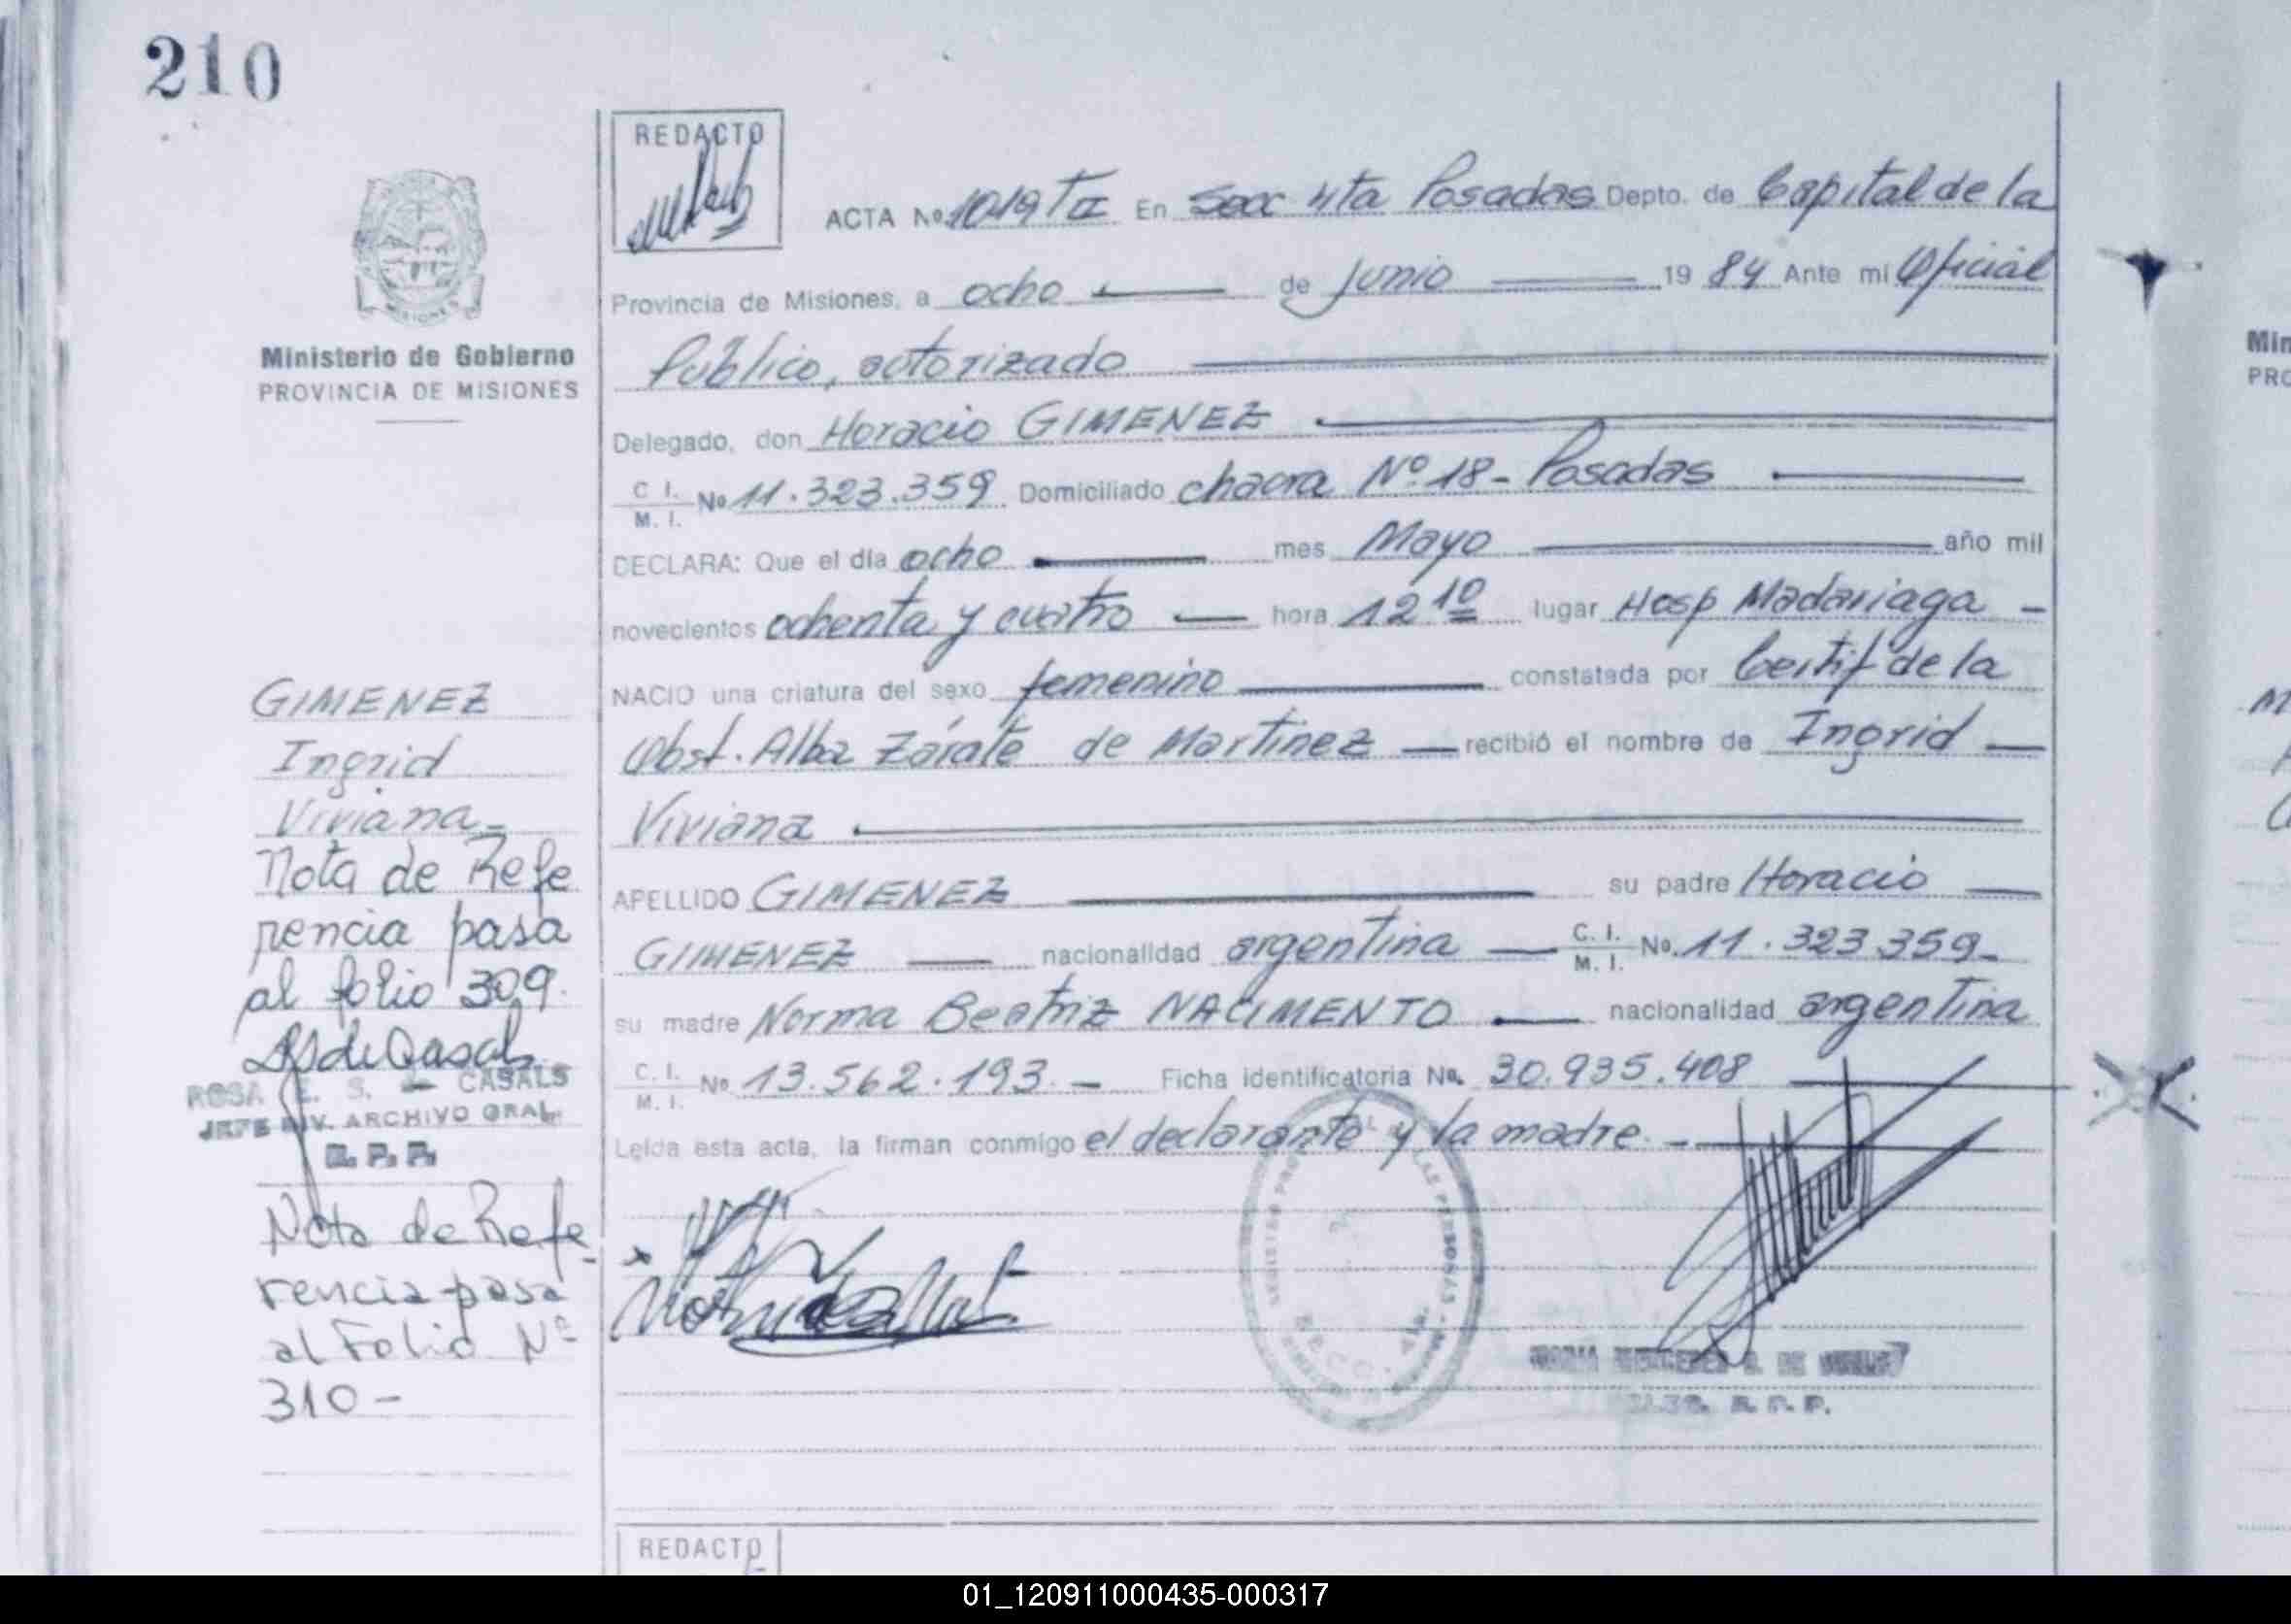 210
REDACTO
ACTA No. 1019 TII En Secc 4ta Posadas Depto. de Capital de la
Provincia de Misiones, a ocho de Junio 19 84 Ante mi Oficial
Público, autorizado
Delegado, don Horacio GIMENEZ
C. I. M. I. No 11.323.359 Domiciliado chacra Nº 18 - Posadas
DECLARA: Que el día ocho mes Mayo año mil
novecientos ochenta y cuatro hora 12 10 lugar Hosp Madariaga -
NACIO una criatura del sexo femenino constatada por Certif de la
Obst. Alba Zárate de Martinez recibió el nombre de Ingrid
Viviana
APELLIDO GIMENEZ su padre Horacio
GIMENEZ nacionalidad argentina C. I. M. I. No. 11.323.359-
su madre Norma Beatriz NACIMENTO nacionalidad argentina
C. I. M. I. No 13.562.193. - Ficha identificatoria No. 30.935.408
Leída esta acta, la firman conmigo el declarante y la madre. -
Ministerio de Gobierno
PROVINCIA DE MISIONES
MISIONES
GIMENEZ
Ingrid
Viviana-
Nota de Refe
rencia pasa
al folio 309.
ROSA E. S. CASALS
JEFE DIV. ARCHIVO GRAL.
R. P. P.
Nota de Refe-
rencia pasa
al Folio Nº
310-
DE LAS PERSONAS
R. P. P.
REDACTO
Min
PRO
01_120911000435-000317